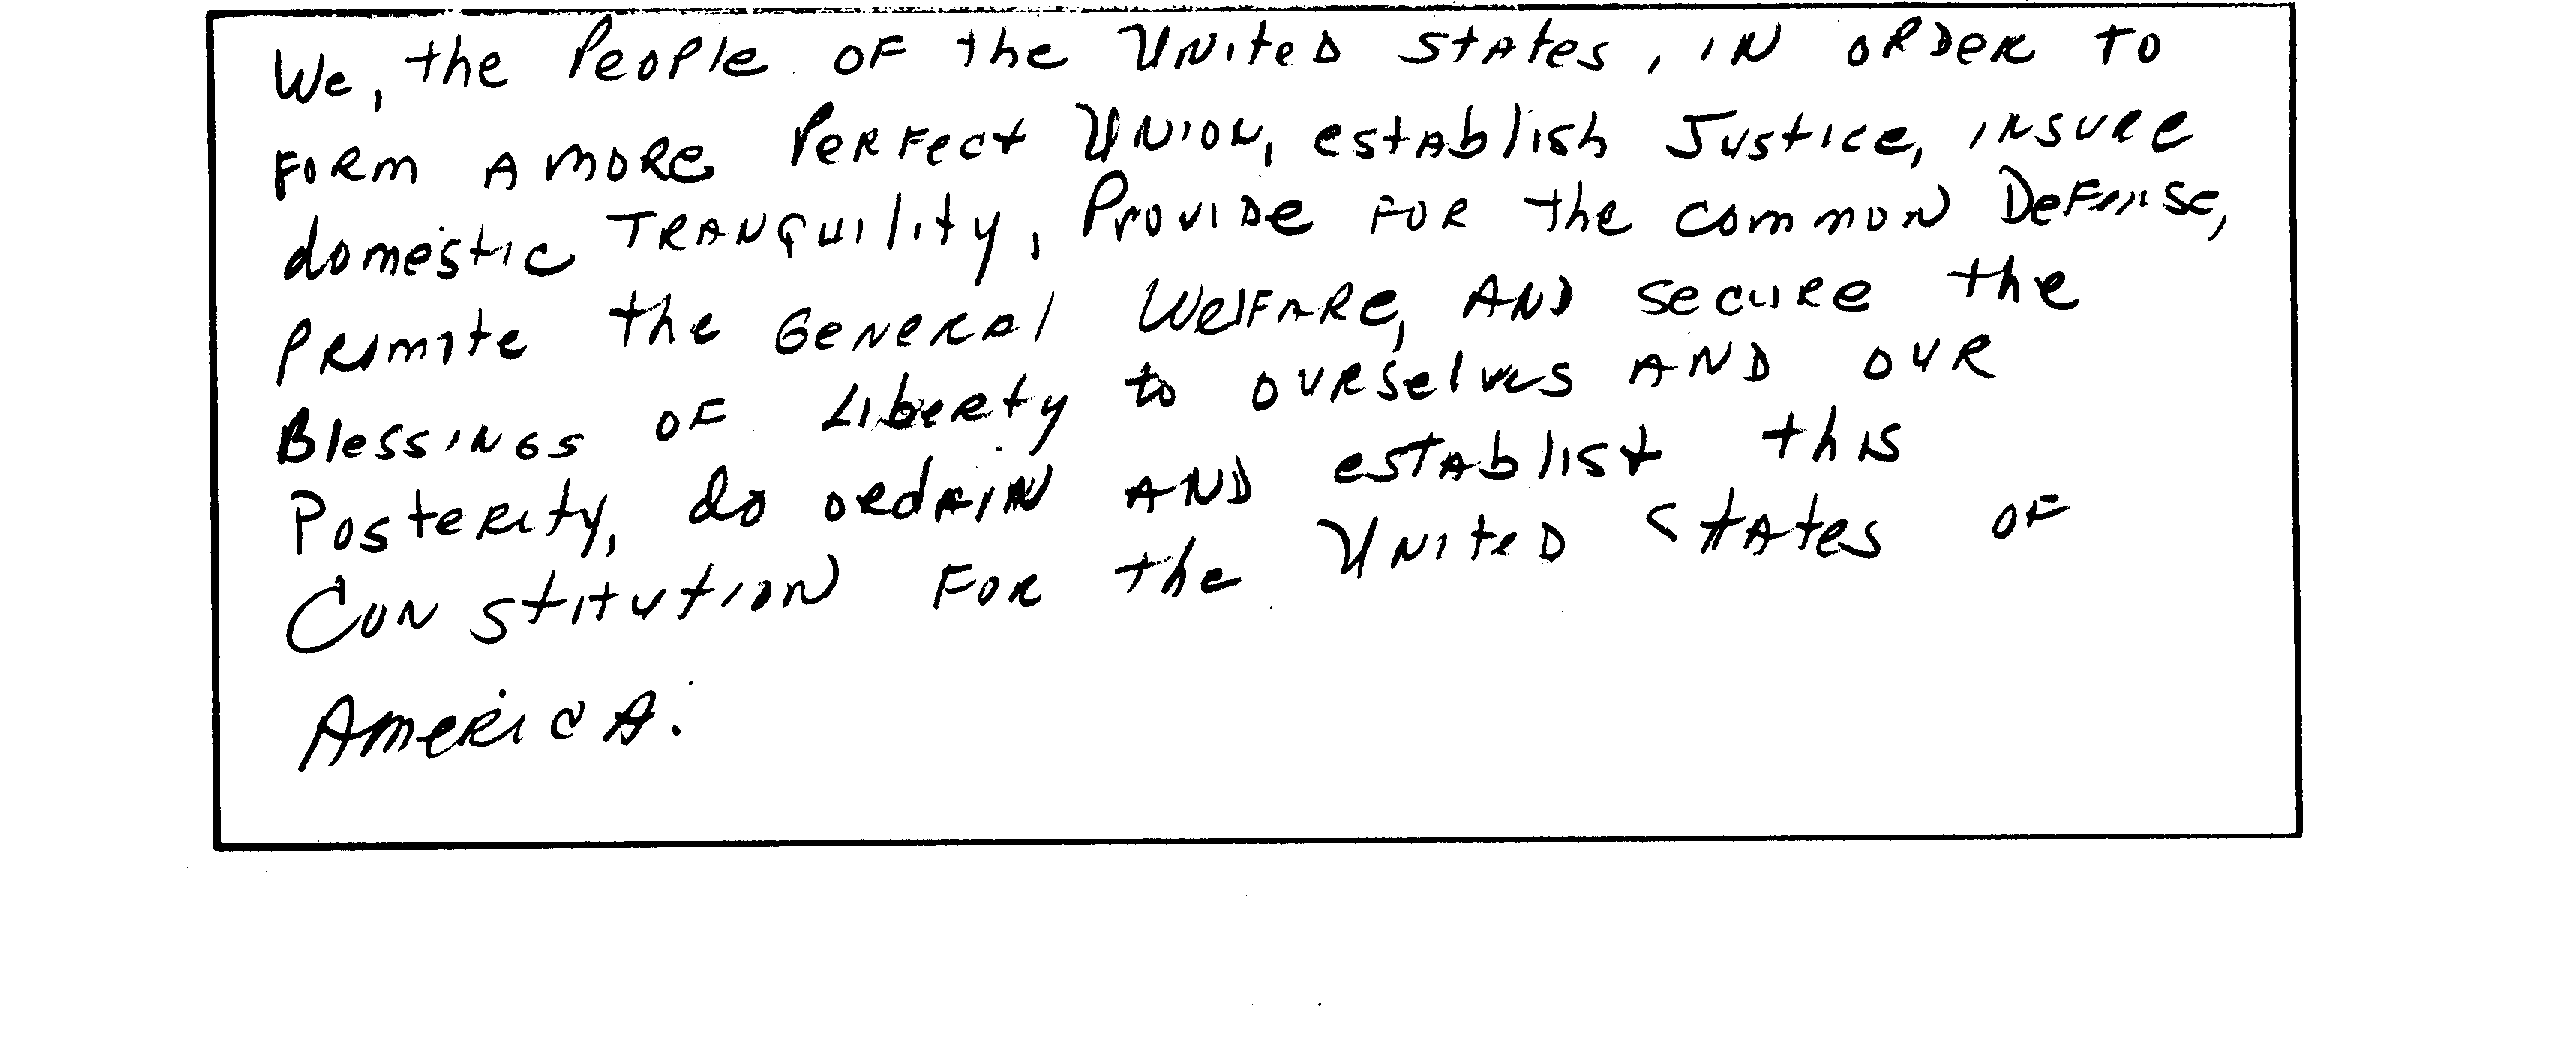 We, the People of the United States, in order to
form a more Perfect Union, establish Justice, insure
domestic Tranquility, Provide for the common Defense,
Promote the General Welfare, and secure the
Blessings of Liberty to ourselves and our
Posterity, do ordain and establist this
Constitution for the United States of
America.